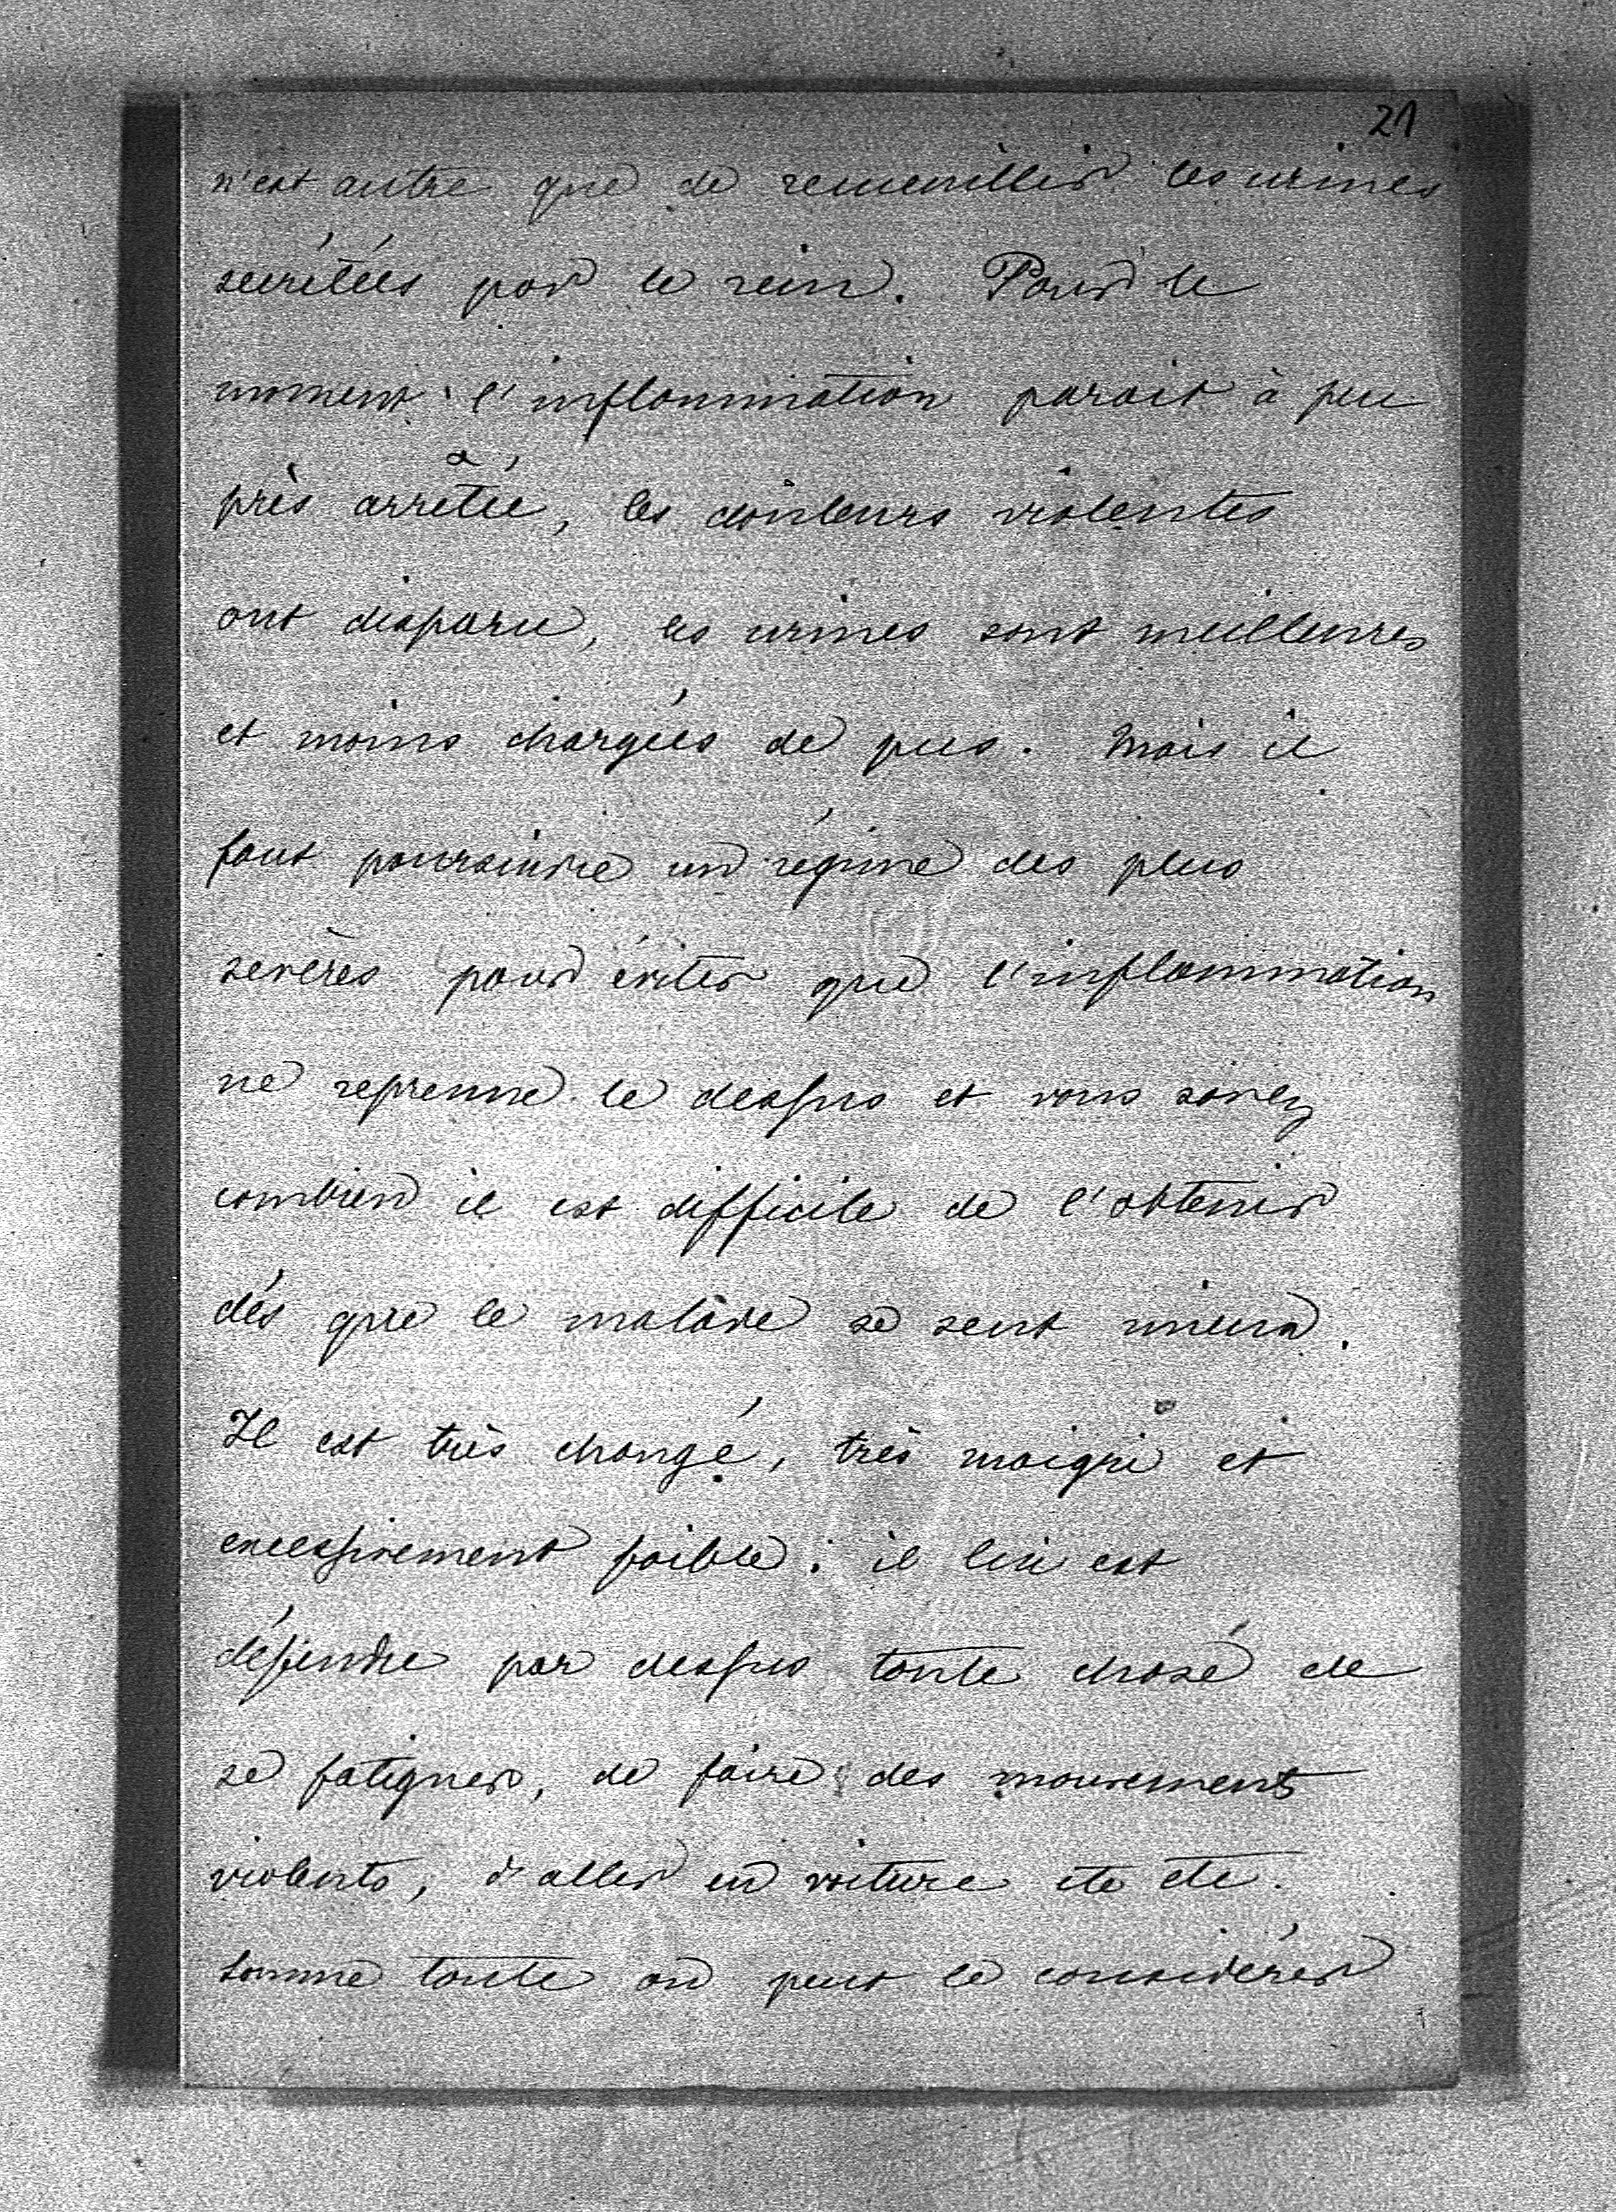 21
n'est autre que de recueuillir les urines
secrétées par le rein. Pour le
moment l'inflammation parait à peu
près arrêtée, les douleurs violentes
ont disparu, les urines sont meilleures
et moins chargées de pus. Mais il
faut poursuivre un régime des plus
sevères pour éviter que l'inflammation
ne reprenne le dessus et vous savez
combien il est difficile de l'obtenir
dès que le malade se sent mieux.
Il est très changé, très maigri et
excessivement faible; il lui est
défendre par dessus toute chose de
se fatiguer, de faire des mouvements
violents, d'aller en voiture etc etc.
Somme toute on peut le considérer